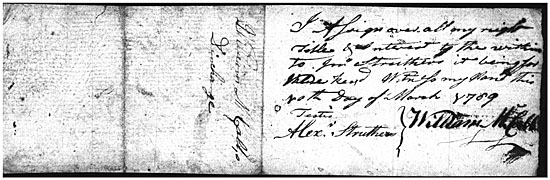 William McCall's
Discharge
I Assign over all my right
Title & Interest of the within
to Jno. Struthers it being for
Value Recd Witness my Hand this
10th Day of March 1789
Teste
Alexr. Struthers { William McCall